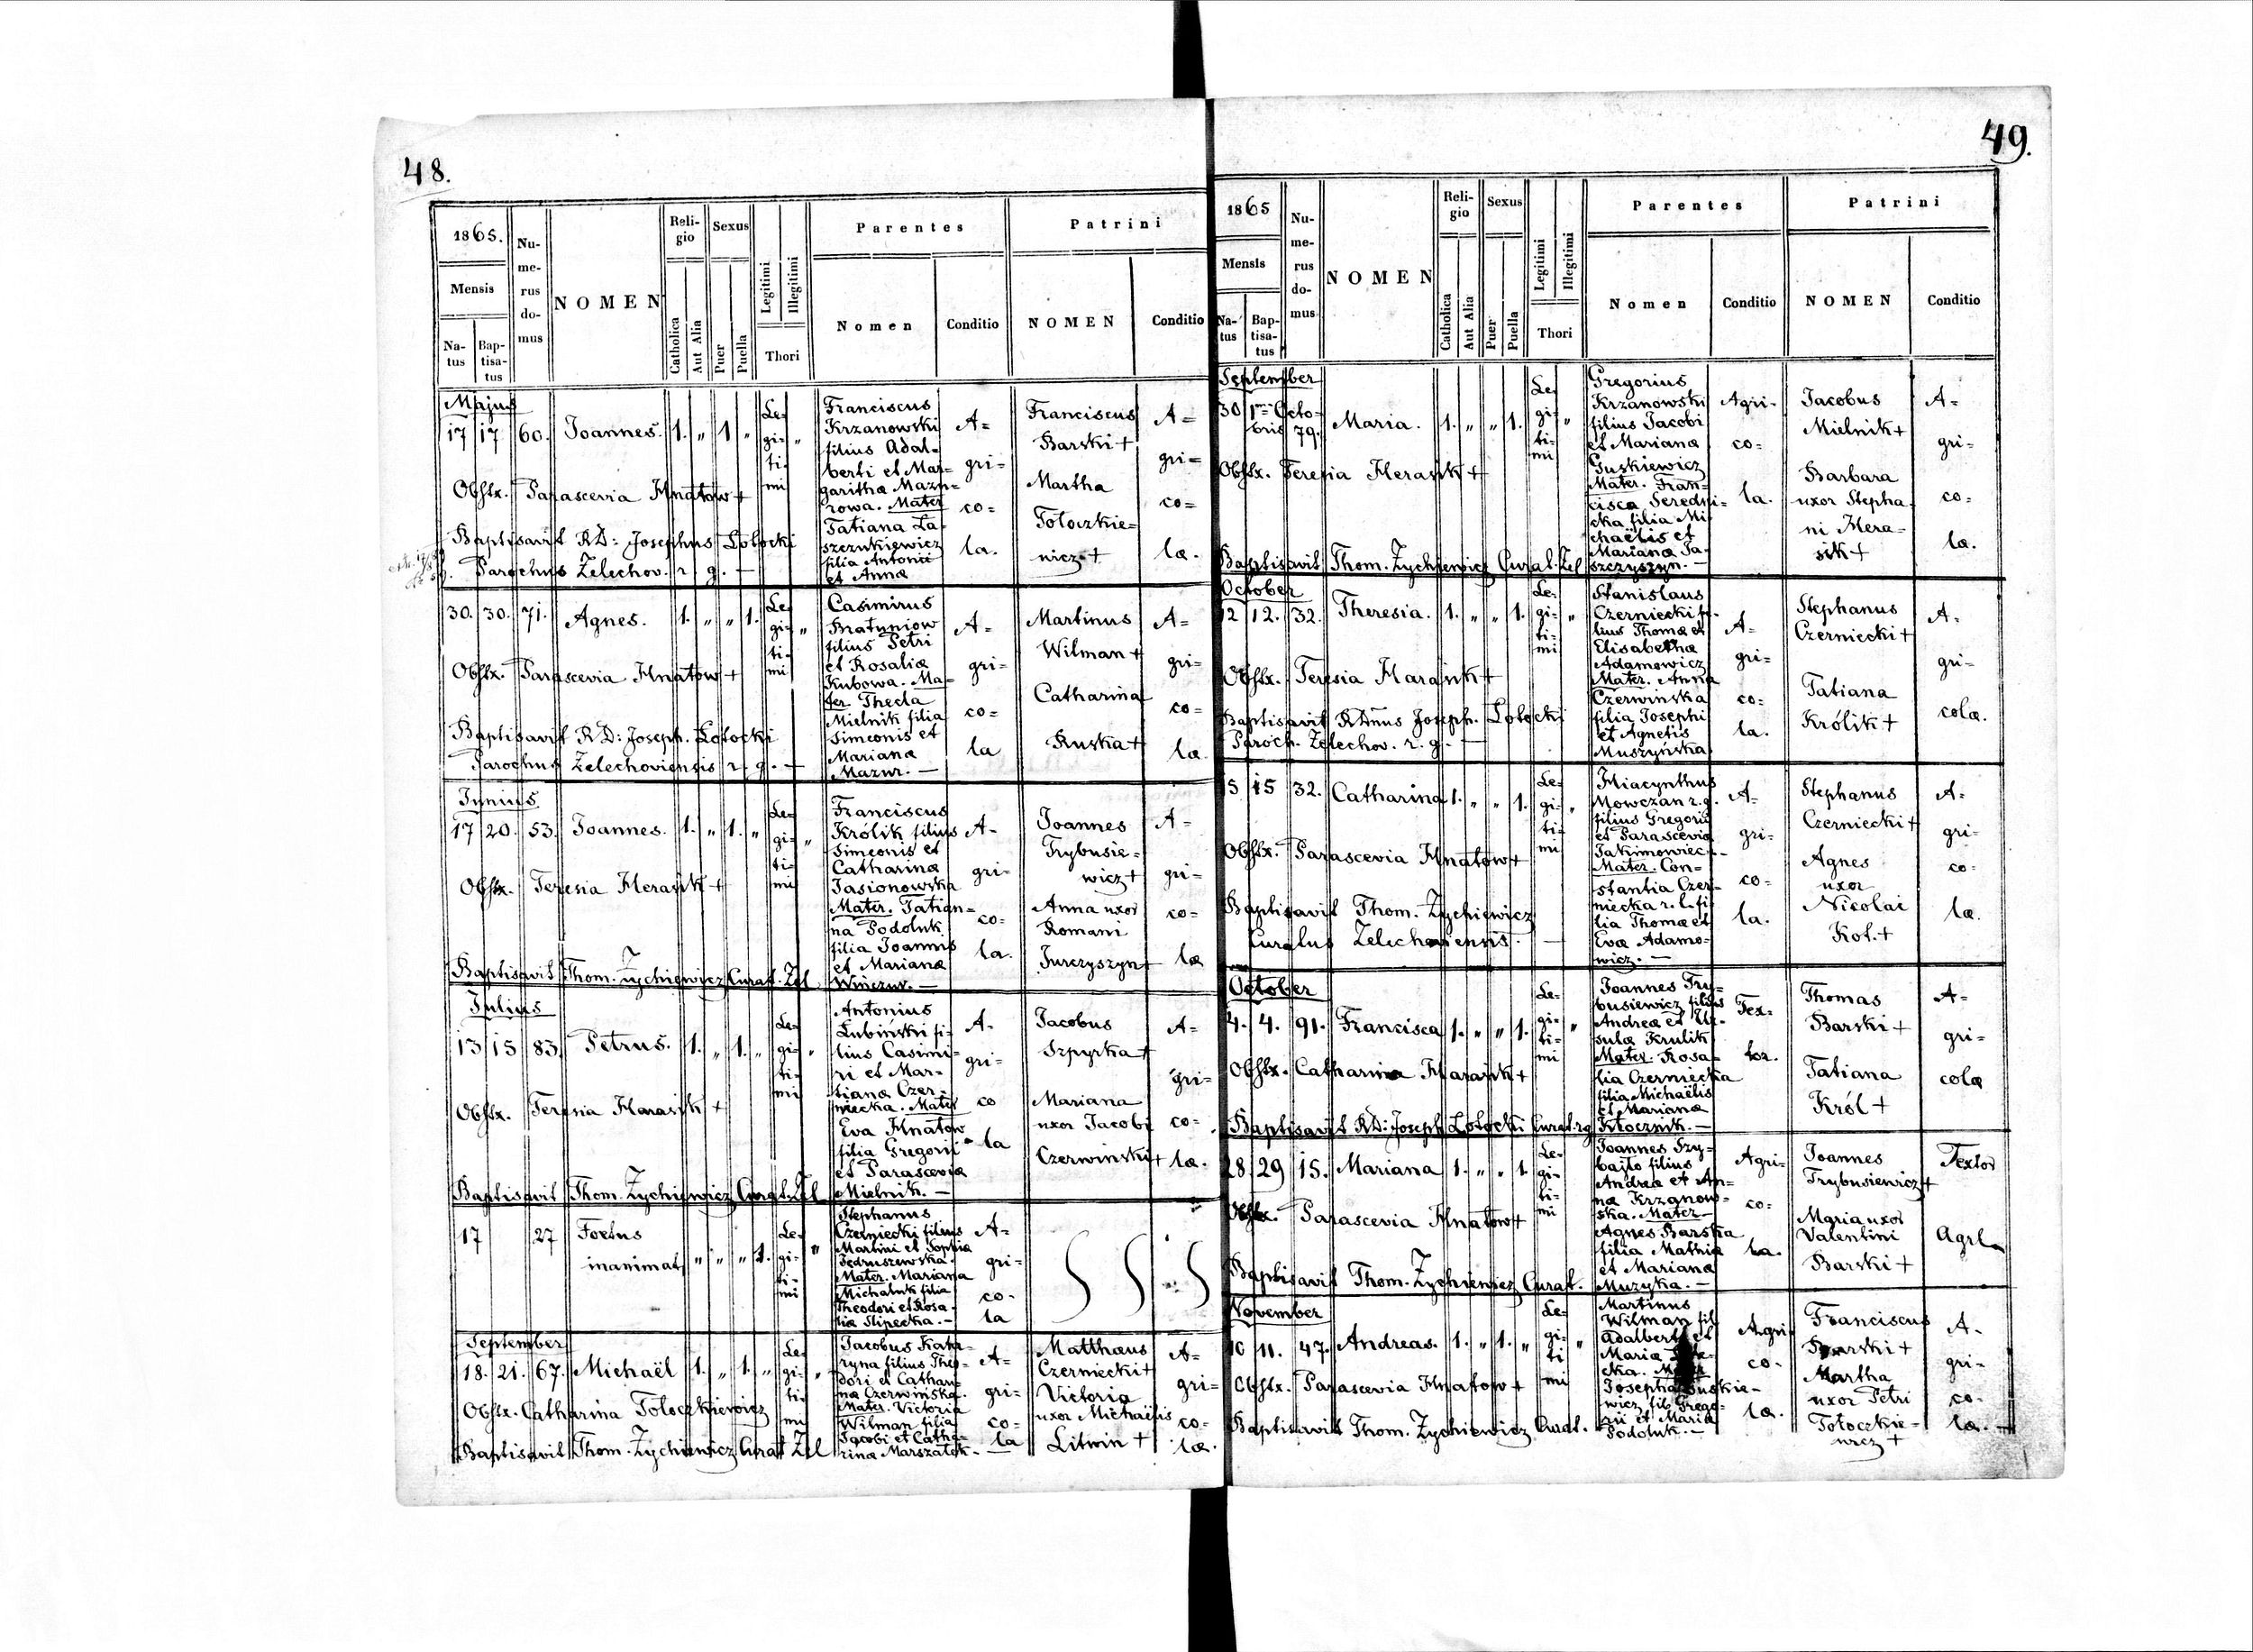 48.
1865.
Mensis
Na-
tus
Bap-
tisa-
tus
Nu-
me-
rus
do-
mus
NOMEN
Reli-
gio
Catholica
Aut Alia
Sexus
Puer
Puella
Legitimi
Illegitimi
Thori
Parentes
Nomen
Conditio
Patrini
NOMEN
Conditio
Majus
17 17. 60. Joannes. 1. „ 1 „
Le-
gi-
ti-
mi
„
Franciscus
Krzanowski
filius Adal-
berti et Mar-
garitha Mazu-
rowa. Mater
Tatiana La-
szczukiewicz
filia Antonii
et Anna
A=
gri=
co=
la.
Franciscus
Barski +
Martha
Tołoczkie=
wicz +
A=
gri=
co=
læ.
Obstx. Parascevia Hnatow +
Baptisavit RD: Josephus Łotocki
Parochus Zelechov. r. g. —
30. 30. 71. Agnes. 1. „ „ 1.
Le-
gi-
ti-
mi
„
Casimirus
Bratuniow
filius Petri
et Rosaliæ
Kubowa. Ma-
ter Thecla
Mielnik filia
Simeonis et
Mariana
Mazur. —
A=
gri=
co=
la
Martinus
Wilman +
Catharina
Ruska +
A=
gri=
co=
læ.
Obstx. Parascevia Hnatow +
Baptisavit RD: Joseph. Łotocki
Parochus Zelechoviensis r. g. —
Junius
17 20. 53. Joannes. 1. „ 1. „
Le-
gi-
ti-
mi
„
Franciscus
Królik filius
Simeonis et
Catharinæ
Jasionowska
Mater. Tatian=
na Podoluk
filia Joannis
et Marianæ
Winczur. —
A-
gri-
co-
la.
Joannes
Trybusie-
wicz +
Anna uxor
Romani
Jurczyszyn +
A=
gri=
co=
læ
Obstx. Teresia Harasik +
Baptisavit Thom. Zychiewicz Curat. Zel.
Julius
13 15 83. Petrus. 1. „ 1. „
Le-
gi-
ti-
mi
„
Antonius
Łubiński fi-
lius Casimi-
ri et Mar-
tiana Czer-
niecka. Mater
Eva Hnatow
filia Gregorii
et Parascevia
Mielnik. —
A-
gri-
co
la
Jacobus
Szpyrka +
Mariana
uxor Jacobi
Czerwinski +
A=
gri=
co=
læ.
Obstx. Teresia Harasik +
Baptisavit Thom. Zychiewicz Curat. Zel
17 27 Foetus
inanimat. „ „ „ 1.
Le-
gi-
ti-
mi
„
Stephanus
Czerniecki filius
Martini et Sophia
Fedruszewska.
Mater. Mariana
Michaluk filia
Theodori et Rosa-
lia Slipecka. —
A=
gri=
co-
la
September
18. 21. 67. Michaël 1. „ 1. „
Le-
gi-
ti-
mi
„
Jacobus Kata-
ryna filius Theo-
dori et Cathari-
na Czerwińska.
Mater. Victoria
Wilman filia
Jacobi et Catha-
rinæ Marszałek. —
A=
gri=
co=
la
Matthæus
Czerniecki +
Victoria
uxor Michaëlis
Litwin +
A=
gri=
co=
læ.
Obstx. Catharina Tołoczkiewicz
Baptisavit Thom. Zychiewicz Curat Zel
49.
1865
Mensis
Na-
tus
Bap-
tisa-
tus
Nu-
me-
rus
do-
mus
NOMEN
Reli-
gio
Catholica
Aut Alia
Sexus
Puer
Puella
Legitimi
Illegitimi
Thori
Parentes
Nomen
Conditio
Patrini
NOMEN
Conditio
September
30 1ma Octo-
bris 79. Maria. 1. „ „ 1.
Le-
gi-
ti-
mi
„
Gregorius
Krzanowski
filius Jacobi
et Mariana
Guskiewicz
Mater. Fran-
cisca Seredni-
cka filia Mi-
chaëlis et
Mariana Ja-
szczyszyn. —
Agri-
co=
la.
Jacobus
Mielnik +
Barbara
uxor Stepha
ni Hera-
sik +
A=
gri=
co=
læ.
Obstx. Teresia Herasik +
Baptisavit Thom. Zychiewicz Curat. Zel
October
12 12. 32. Theresia. 1. „ „ 1.
Le-
gi-
ti-
mi
„
Stanislaus
Czerniecki fi-
lius Thoma et
Elisabetha
Adamowicz
Mater. Anna
Czerwińska
filia Josephi
et Agnetis
Muszyńska
A=
gri=
co=
la.
Stephanus
Czerniecki +
Tatiana
Królik +
A-
gri=
colæ.
Obstx. Teresia Harasik +
Baptisavit RDnus Joseph. Łotocki
Paroch. Zelechov. r. g. —
15 15 32. Catharina 1. „ „ 1.
Le-
gi-
ti-
mi
„
Hiacynthus
Mowczan r. g.
filius Gregorii
et Parascevia
Jakimowiec. —
Mater. Con-
stantia Czer-
niecka r. l. fi-
lia Thomæ et
Evæ Adamo-
wicz. —
A=
gri=
co=
la.
Stephanus
Czerniecki +
Agnes
uxor
Nicolai
Kot. +
A=
gri=
co=
læ.
Obstx. Parascevia Hnatow +
Baptisavit Thom. Zychiewicz
Curatus Zelechoviensis. —
October
4. 4. 91. Francisca 1. „ „ 1.
Le-
gi-
ti-
mi
„
Joannes Try-
busiewicz filius
Andreæ et Ur-
sula Krulik
Mater. Rosa-
lia Czerniecka
filia Michaëlis
et Marianæ
Kłocznik. —
Tex-
tor.
Thomas
Barski +
Tatiana
Król +
A=
gri=
colæ
Obstx. Catharina Harasik +
Baptisavit RD: Joseph Łotocki Curat. r g
28 29 15. Mariana 1. „ „ 1.
Le-
gi-
ti-
mi
Joannes Try-
bajło filius
Andreæ et An-
na Krzanow-
ska. Mater
Agnes Barska
filia Mathiæ
et Mariana
Muzyka. —
Agri-
co=
la.
Joannes
Trybusiewicz +
Maria uxor
Valentini
Barski +
Textor
Agrla
Obstx. Parascevia Hnatow +
Baptisavit Thom. Zychiewicz Curat.
November
10 11. 47. Andreas. 1. „ 1. „
Le-
gi-
ti
mi
„
Martinus
Wilman fil
Adalberti et
Maria
cka.
Josepha Guskie-
wicz fil. Grego-
rii et Maria
Podoluk. —
Agri
co-
la.
Franciscus
Barski +
Martha
uxor Petri
Tołoczkie-
wicz +
A-
gri=
co-
læ. —
Obstx. Parascevia Hnatow +
Baptisavit Thom. Zychiewicz Curat.